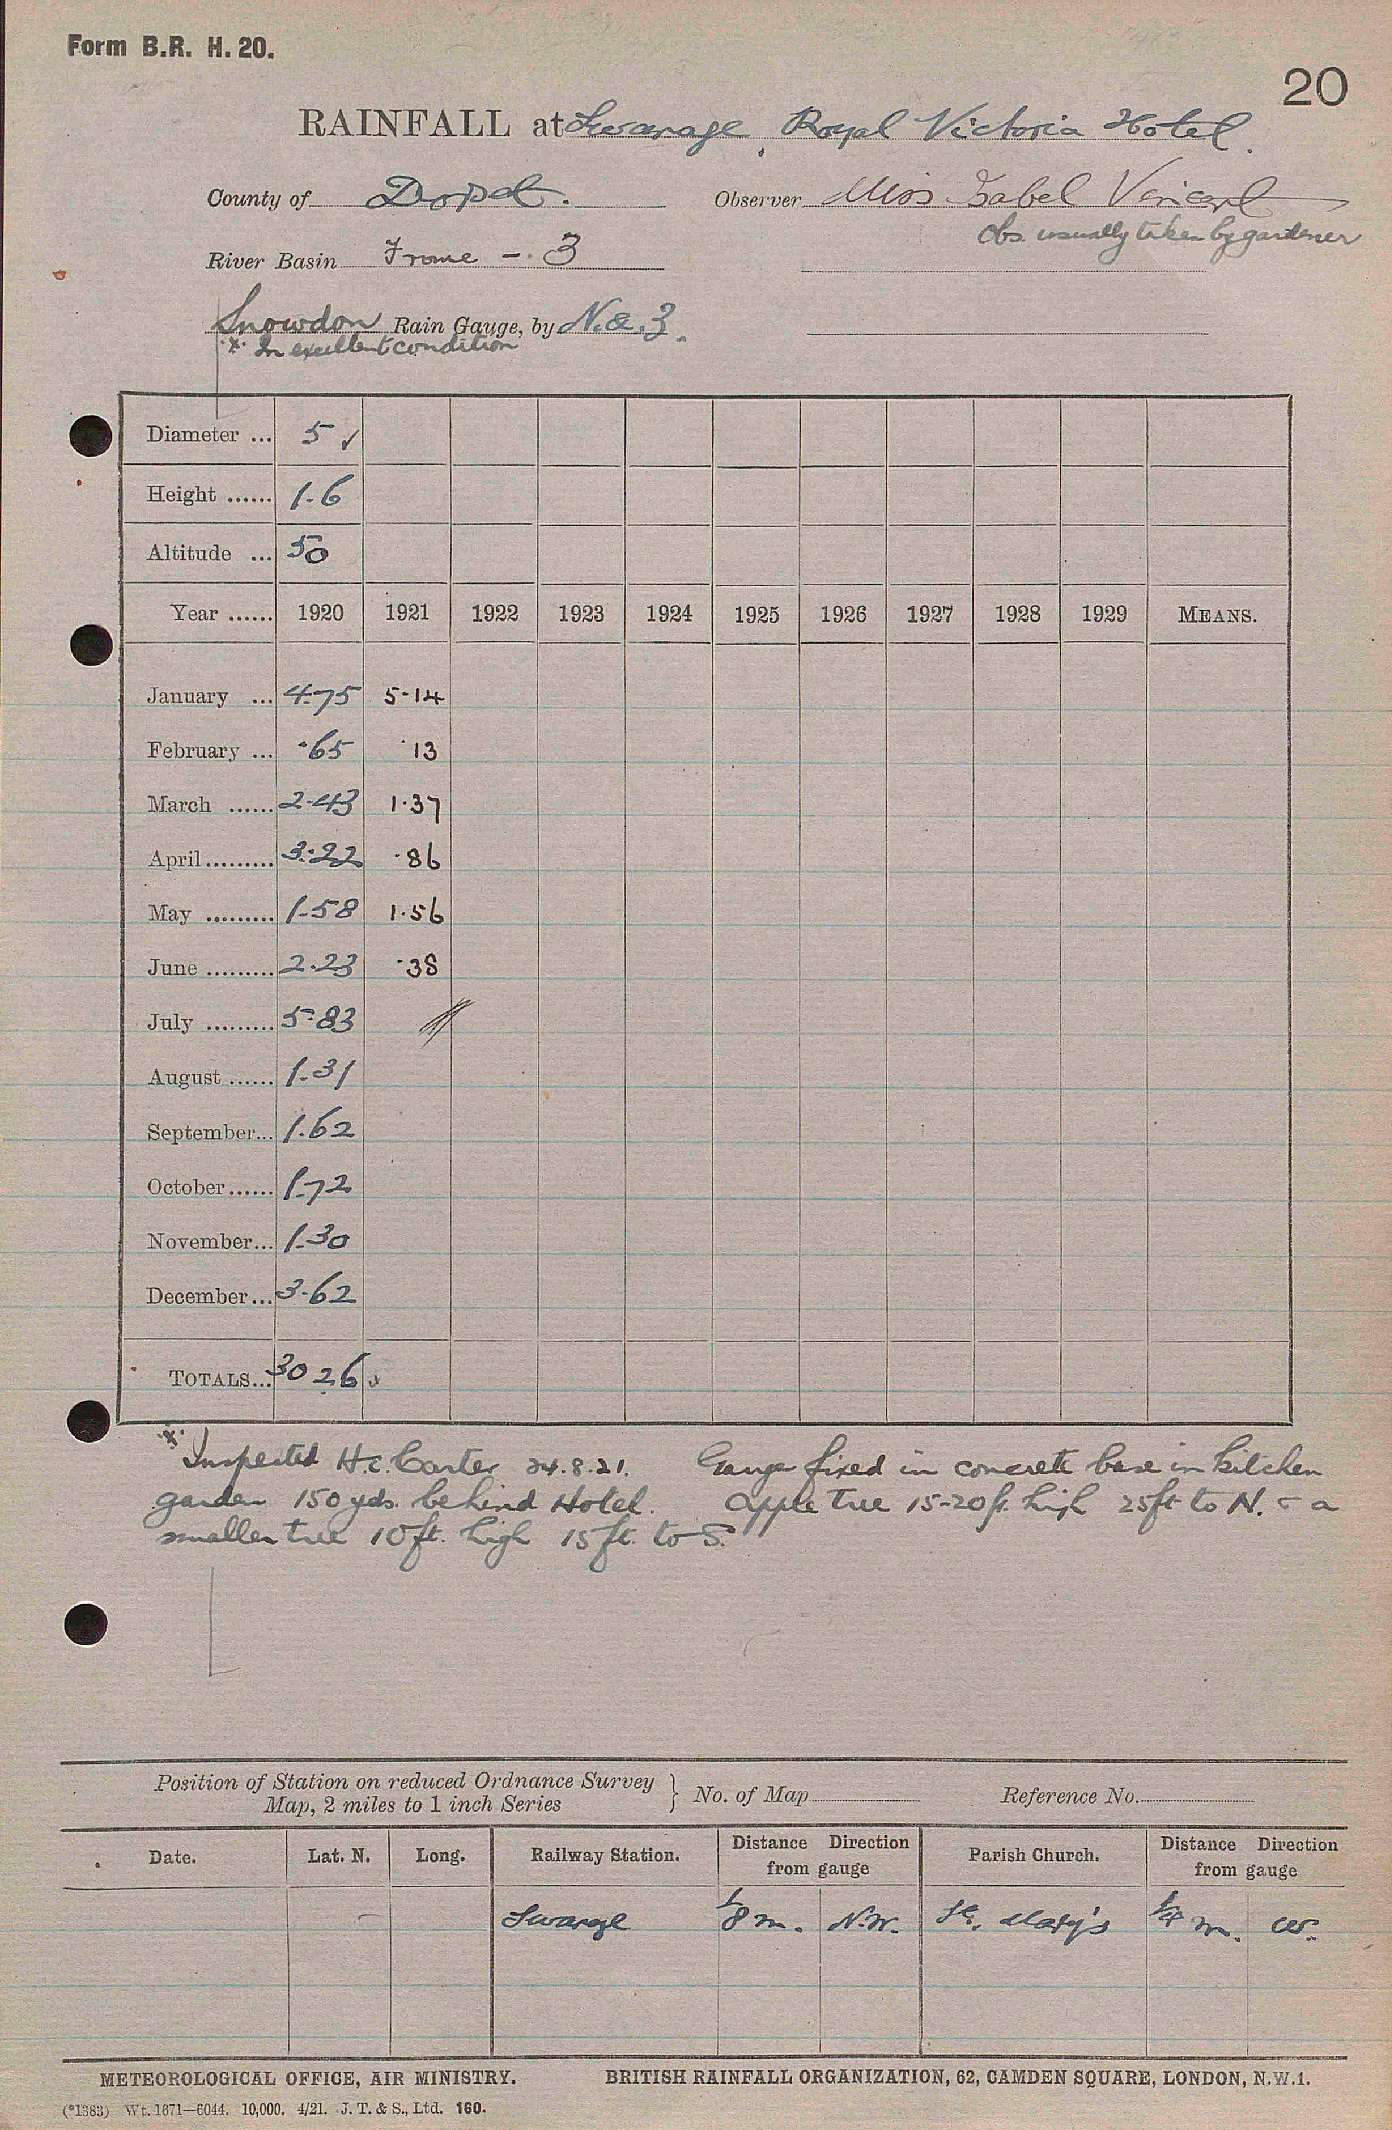 Form B.R. H. 20.
20
RAINFALL at Swanage, Royal Victoria Hotel.
County of Dorset. Observer Miss Isabel Vincent
Obs. usually taken by gardener
River Basin Frome - 3
Snowdon Rain Gauge, by N. & Z.
* In excellent condition
Diameter ... 5 ✓
Height ...... 1.6
Altitude ... 50
Year ...... 1920 1921 1922 1923 1924 1925 1926 1927 1928 1929 MEANS.
January ... 4.75 5.14
February ... .65 .13
March ...... 2.43 1.37
April ......... 3.22 .86
May ......... 1.58 1.56
June ......... 2.23 .38
July ......... 5.83
August ...... 1.31
September... 1.62
October ...... 1.72
November... 1.30
December... 3.62
TOTALS... 30.26
* Inspected H.E. Carter 24.8.21. Gauge fixed in concrete base in kitchen
garden 150 yds. behind Hotel. Apple tree 15-20 ft. high 25 ft to N. & a
smaller tree 10 ft. high 15 ft. to S.
Position of Station on reduced Ordnance Survey
Map, 2 miles to 1 inch Series } No. of Map Reference No.
Date. Lat. N. Long. Railway Station. Distance Direction from gauge Parish Church. Distance Direction from gauge
Swanage 1/8 m. N.W. St. Mary's 1/4 m. W.
METEOROLOGICAL OFFICE, AIR MINISTRY. BRITISH RAINFALL ORGANIZATION, 62, CAMDEN SQUARE, LONDON, N.W.1.
(*1383) Wt. 1871—6044. 10,000. 4/21. J. T. & S., Ltd. 160.